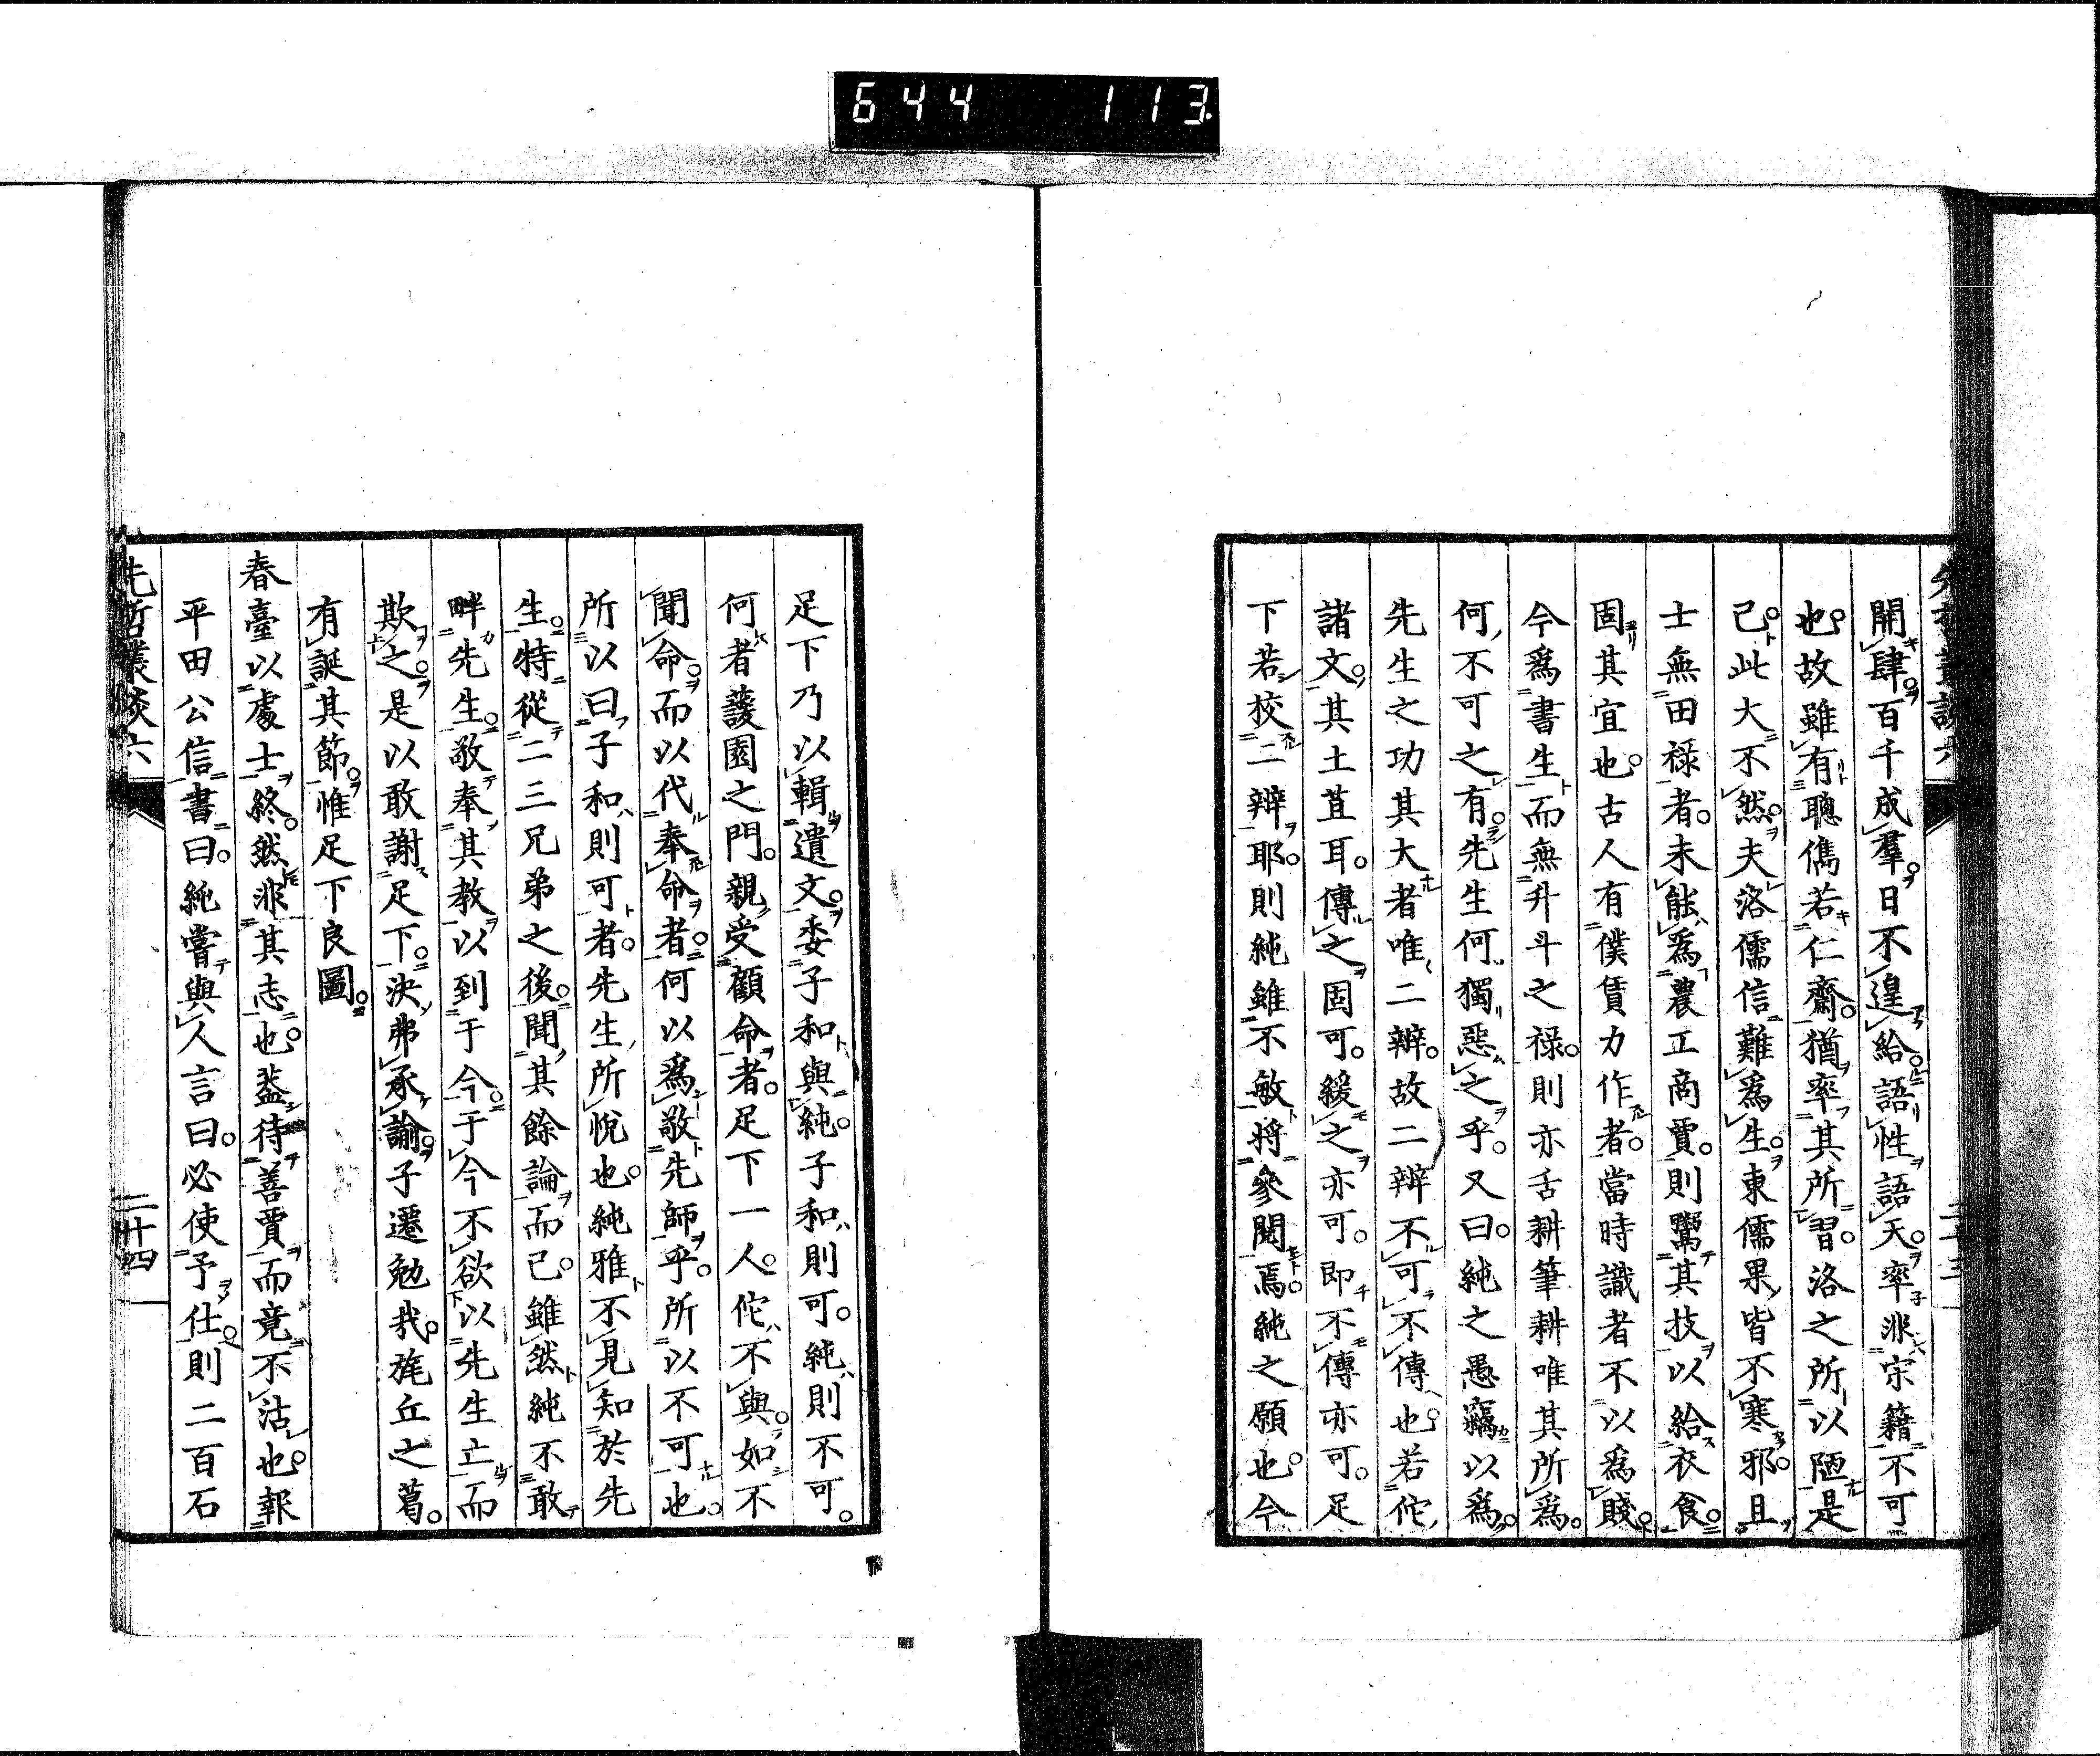 644 113
先哲叢談六
開肆。百千成羣。日不遑給。語性語天。率非宋籍不可
也。故雖有聰儁若仁齋。猶率其所習。洛之所以陋是
已。此大不然。夫洛儒信難爲生。東儒果皆不寒邪。且
士無田祿者。未能爲農工商賈。則鬻其技以給衣食。
固其宜也。古人有僕賃力作者。當時識者不以爲賤。
今爲書生而無升斗之祿。則亦舌耕筆耕唯其所爲。
何不可之有。先生何獨惡之乎。又曰。純之愚竊以爲。
先生之功其大者唯二辨。故二辨不可不傳也。若佗
諸文。其土苴耳。傳之固可。緩之亦可。即不傳亦可。足
下若校二辨耶。則純雖不敏將參閱焉。純之願也。今
二十三
足下乃以輯遺文。委子和與純。子和則可。純則不可。
何者蘐園之門。親受顧命者。足下一人。佗不與。如不
聞命。而以代奉命者。何以爲敬先師乎。所以不可也。
所以曰子和則可者。先生所悅也。純雅不見知於先
生。特從二三兄弟之後。聞其餘論而已。雖然純不敢
畔先生。敬奉其教以到于今。于今不欲以先生亡而
欺之。是以敢謝足下。決弗承諭。子遷勉哉。旄丘之葛。
有誕其節。惟足下良圖。
春臺以處士終。然非其志也。蓋待善賈而竟不沽也。報
平田公信書曰。純嘗與人言曰。必使予仕。則二百石
先哲叢談六
二十四